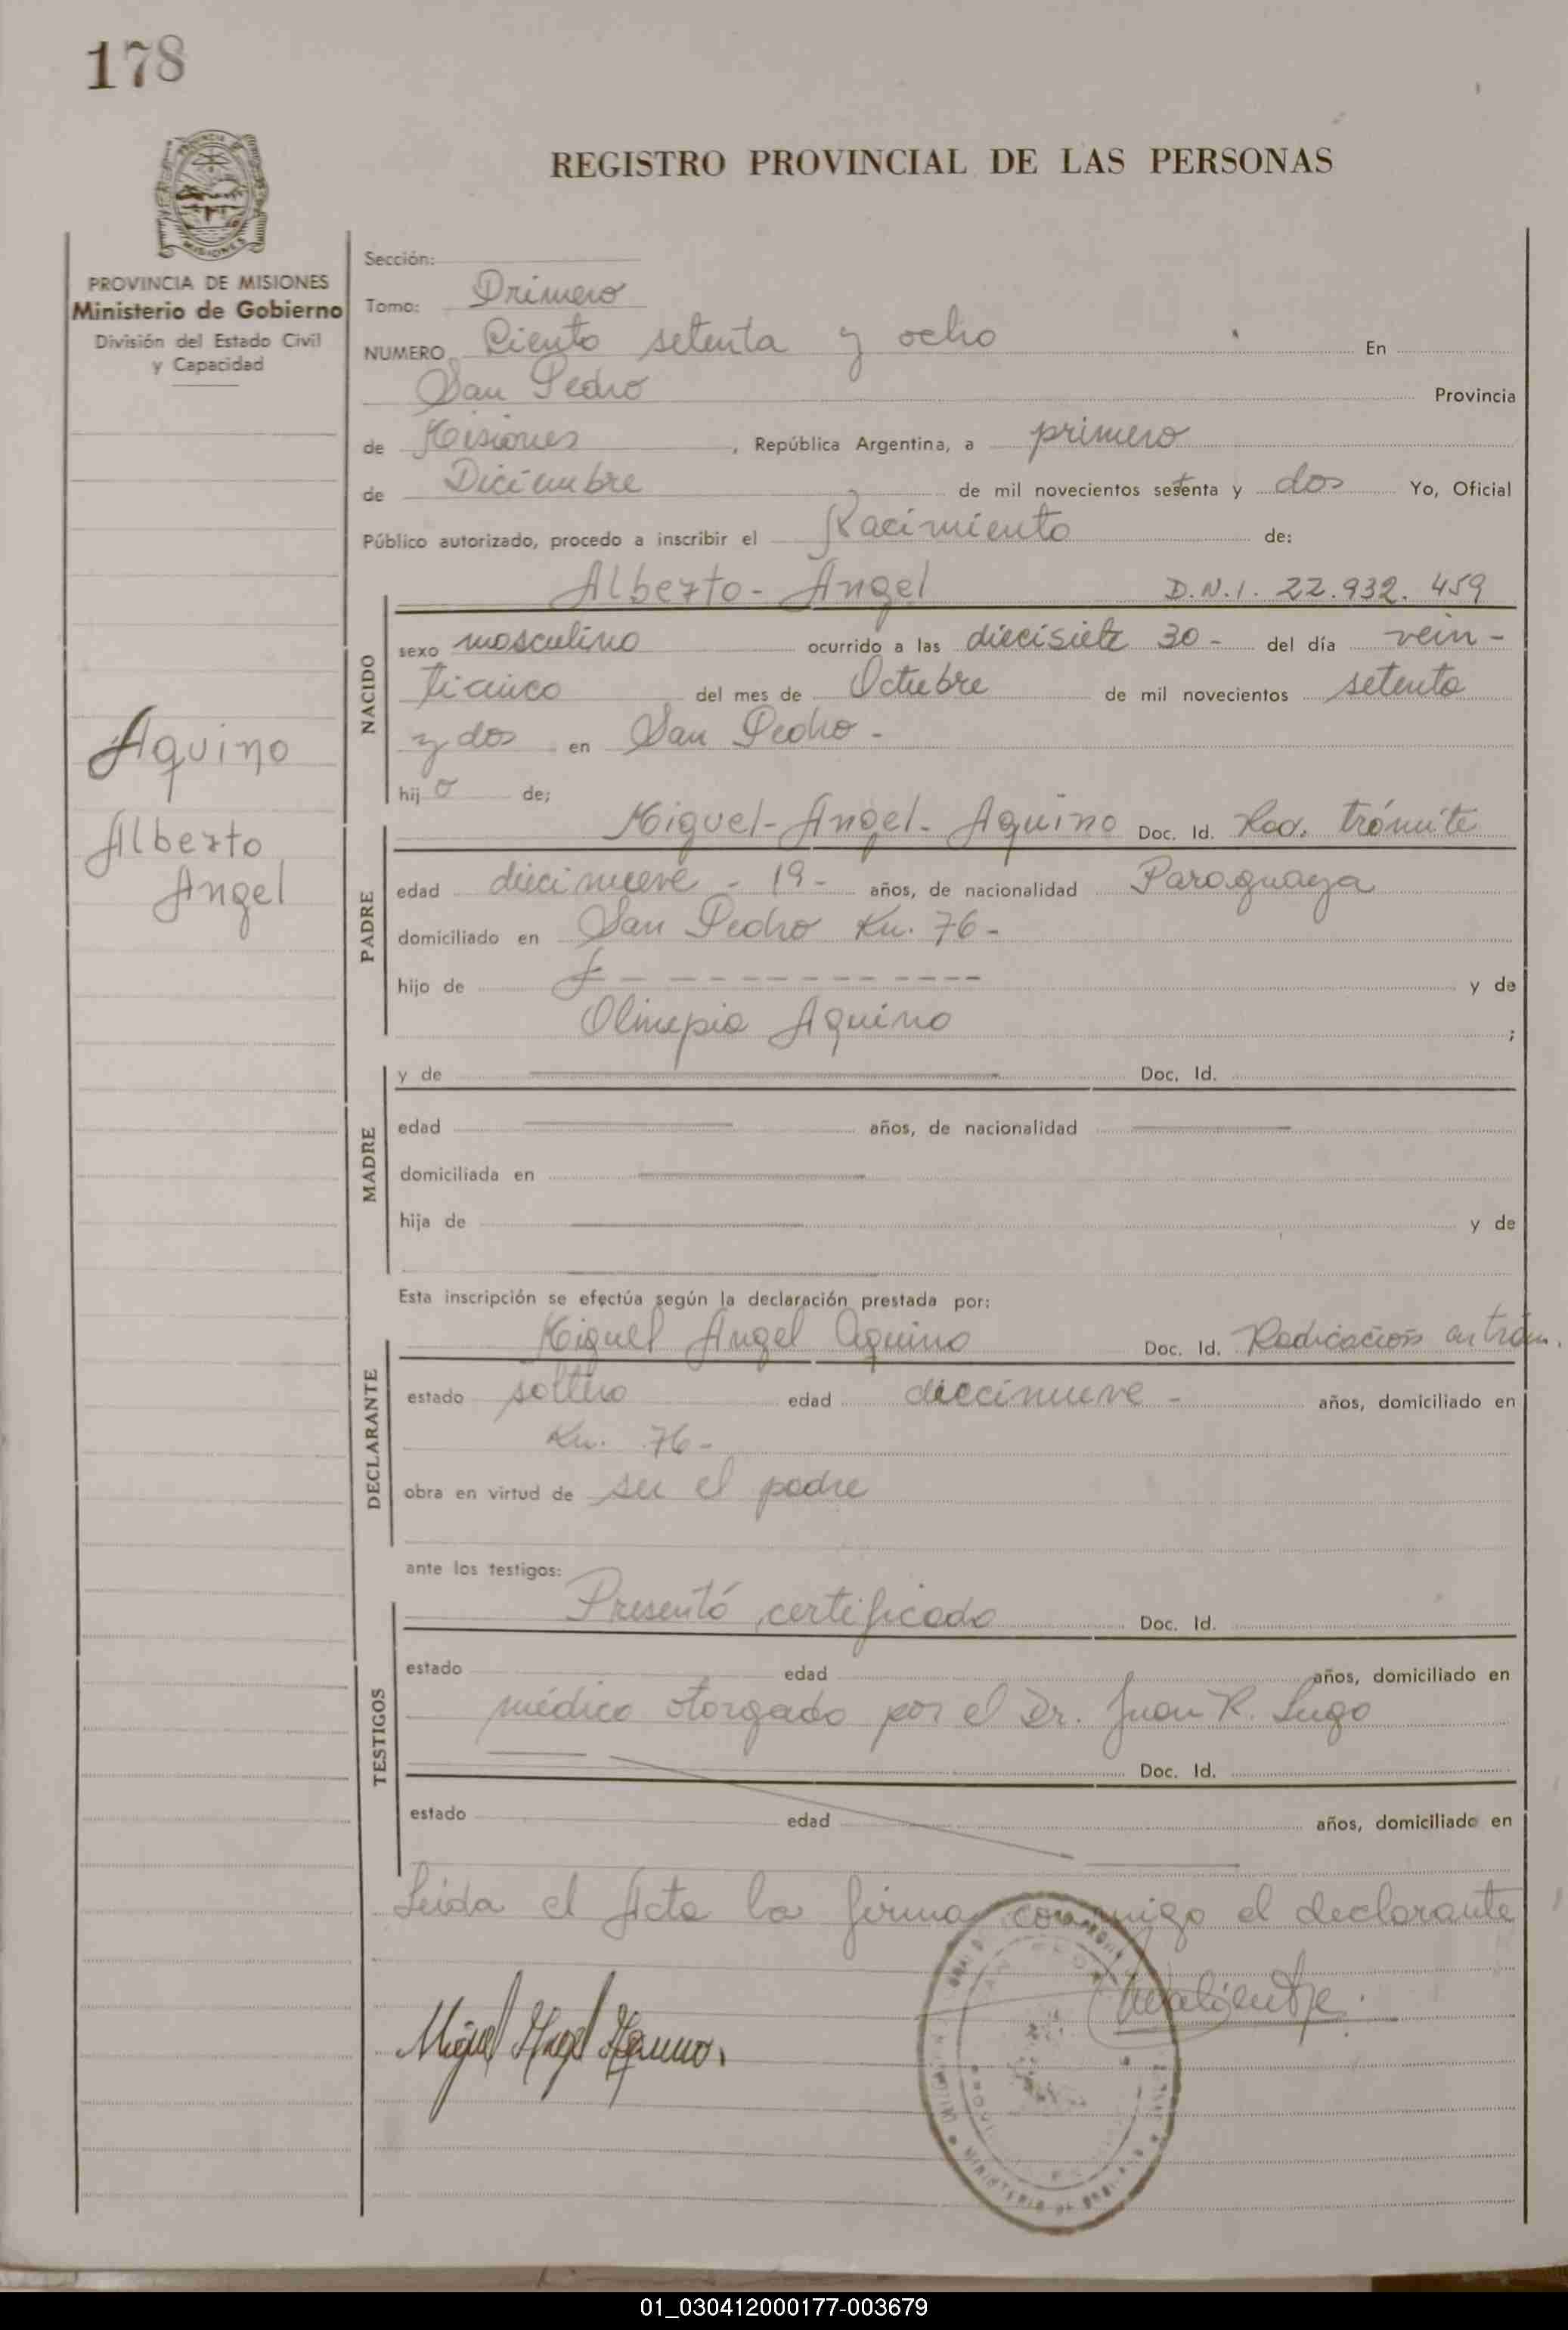 178
REGISTRO PROVINCIAL DE LAS PERSONAS
PROVINCIA DE MISIONES
Ministerio de Gobierno
División del Estado Civil
y Capacidad
Aquino
Alberto
Angel
Sección:
Tomo: Primero
NUMERO Ciento setenta y ocho En
San Pedro Provincia
de Misiones, República Argentina, a primero
de Diciembre de mil novecientos setenta y dos Yo, Oficial
Público autorizado, procedo a inscribir el Nacimiento de:
Alberto - Angel D.N.I. 22.932.459
NACIDO
sexo masculino ocurrido a las diecisiete 30 - del día vein -
ticinco del mes de Octubre de mil novecientos setenta
y dos en San Pedro -
hijo de;
PADRE
Miguel - Angel - Aquino Doc. Id. Rad. trámite
edad diecinueve - 19 - años, de nacionalidad Paraguaya
domiciliado en San Pedro Km. 76 -
hijo de y de
Olimpia Aquino ;
MADRE
y de Doc. Id.
edad años, de nacionalidad
domiciliada en
hija de y de
Esta inscripción se efectúa según la declaración prestada por:
DECLARANTE
Miguel Angel Aquino Doc. Id. Radicación en trám.
estado soltero edad diecinueve - años, domiciliado en
Km. 76 -
obra en virtud de ser el padre
ante los testigos:
TESTIGOS
Presentó certificado Doc. Id.
estado edad años, domiciliado en
médico otorgado por el Dr. Juan R. Lugo
Doc. Id.
estado edad años, domiciliado en
Leida el Acta la firma conmigo el declarante
Miguel Angel Aquino.
01_030412000177-003679